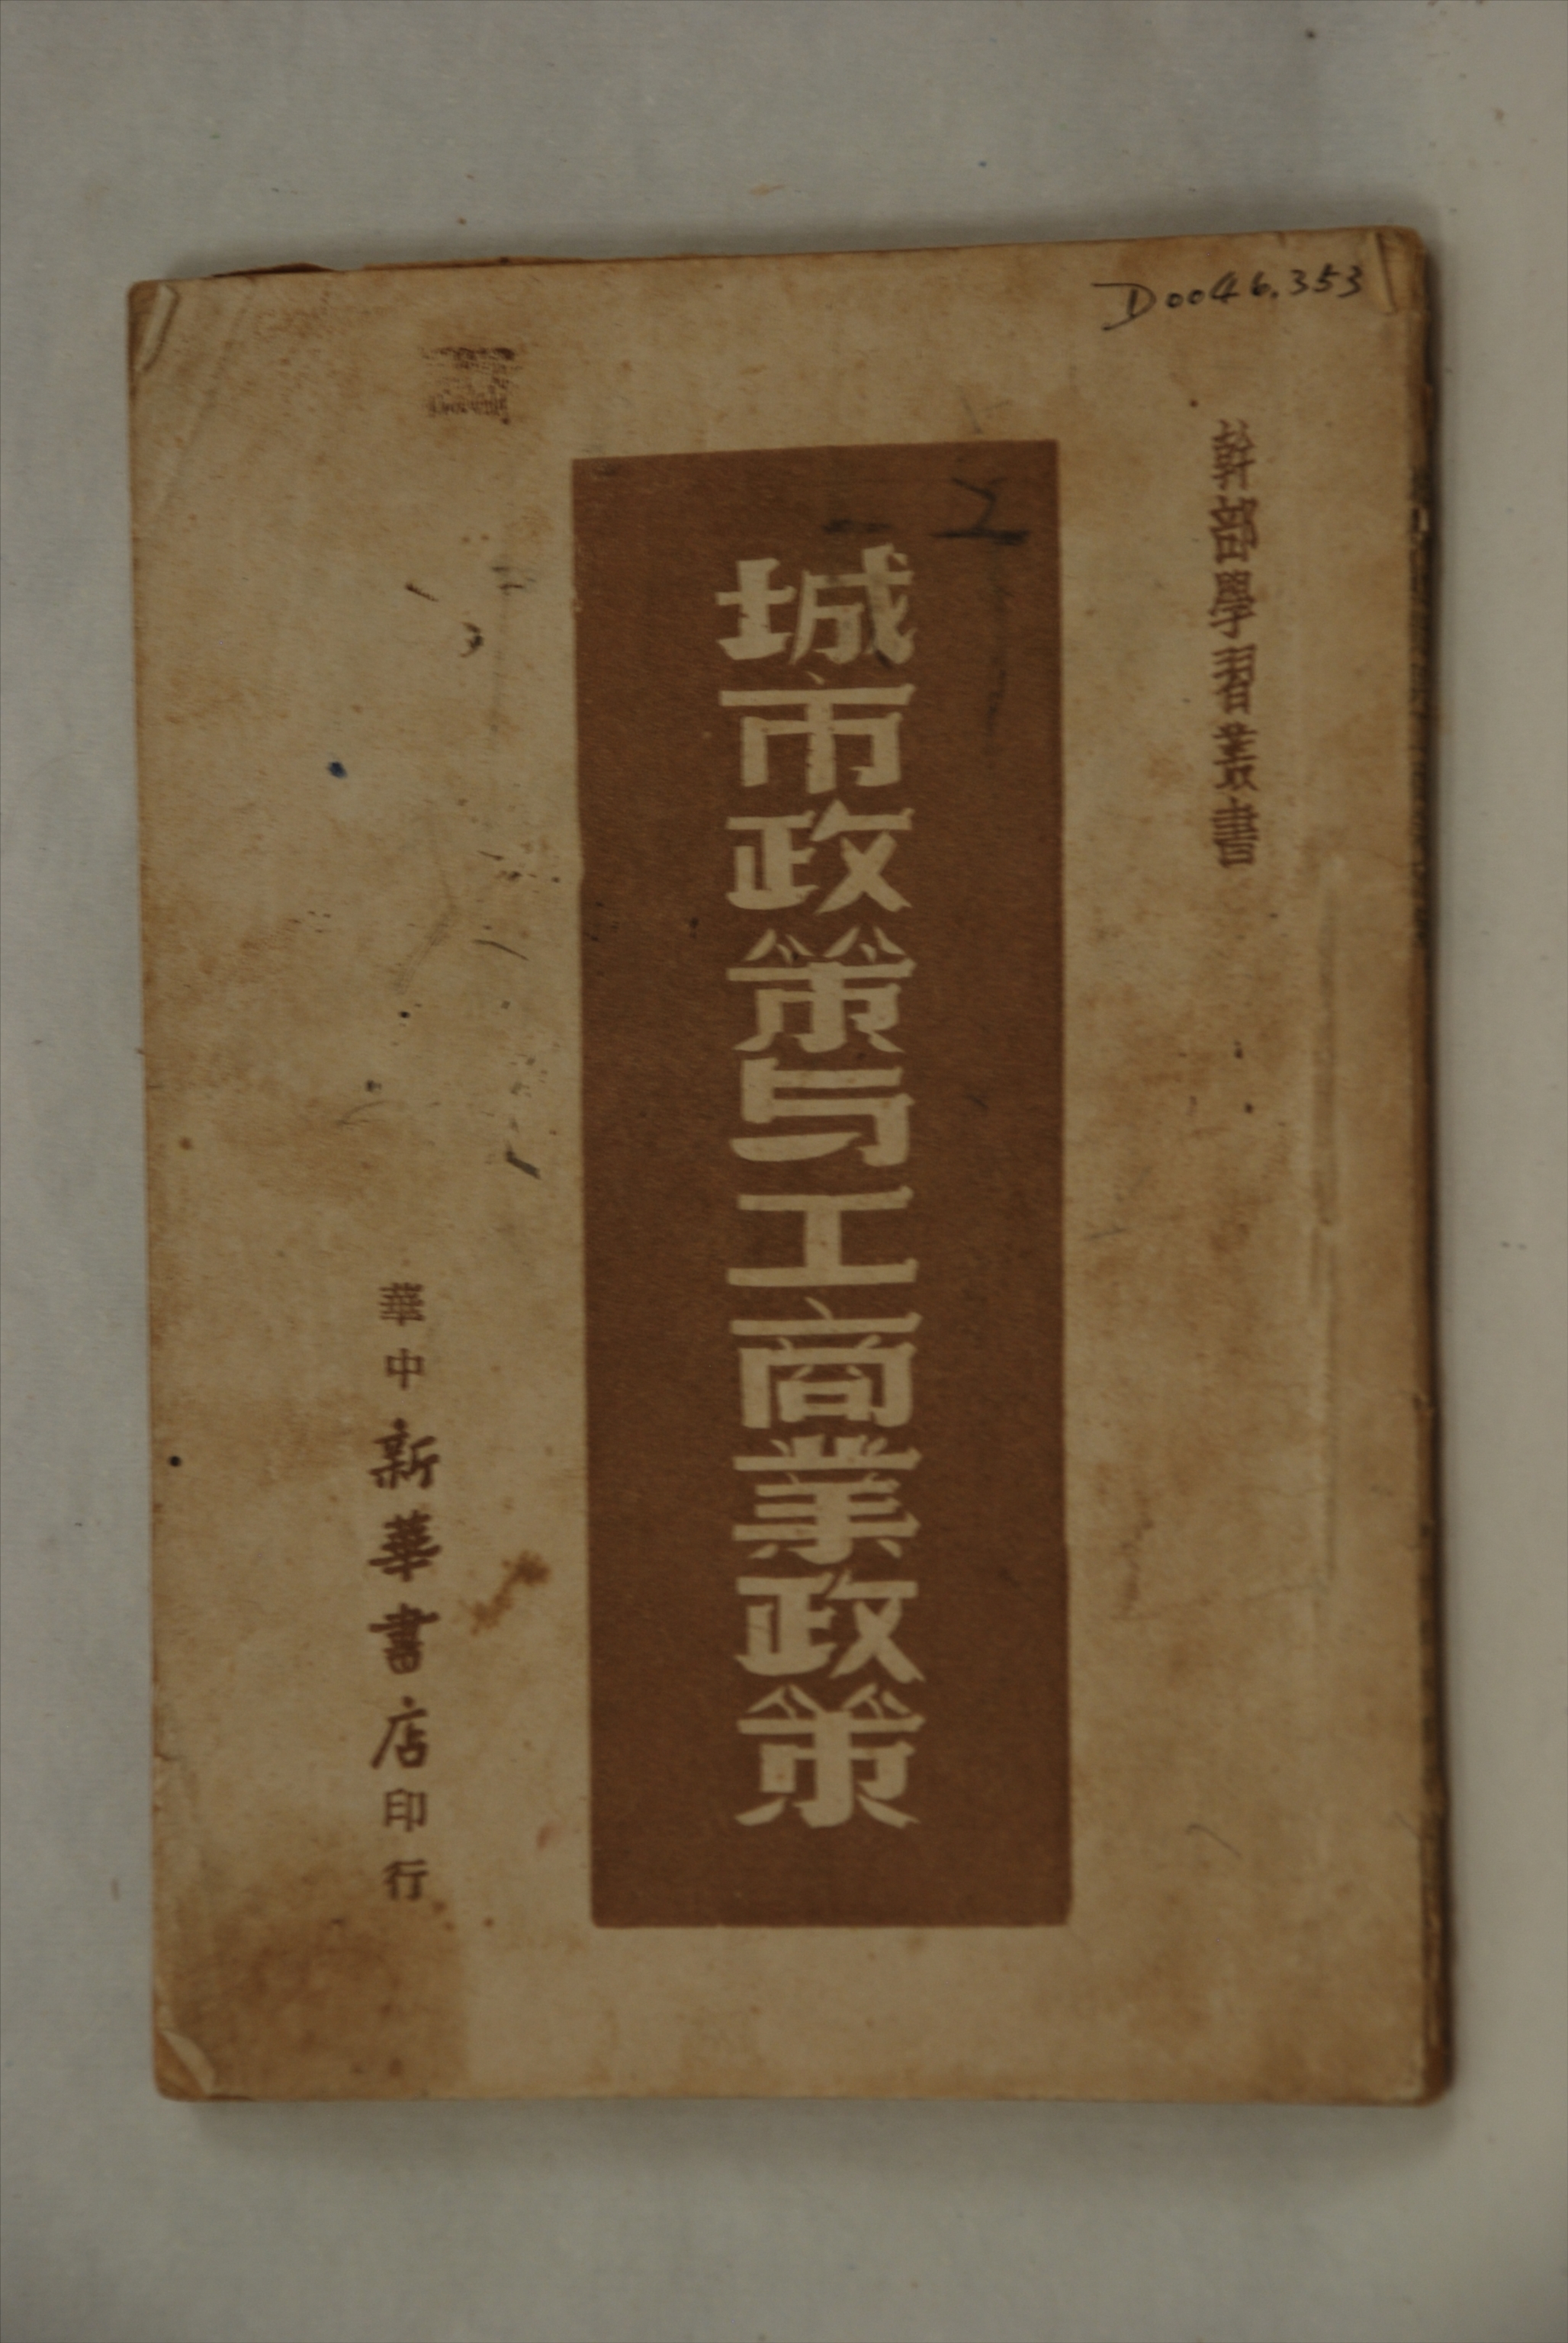 D0046.353
幹部學習叢書
城市政策与工商業政策
華中新華書店印行